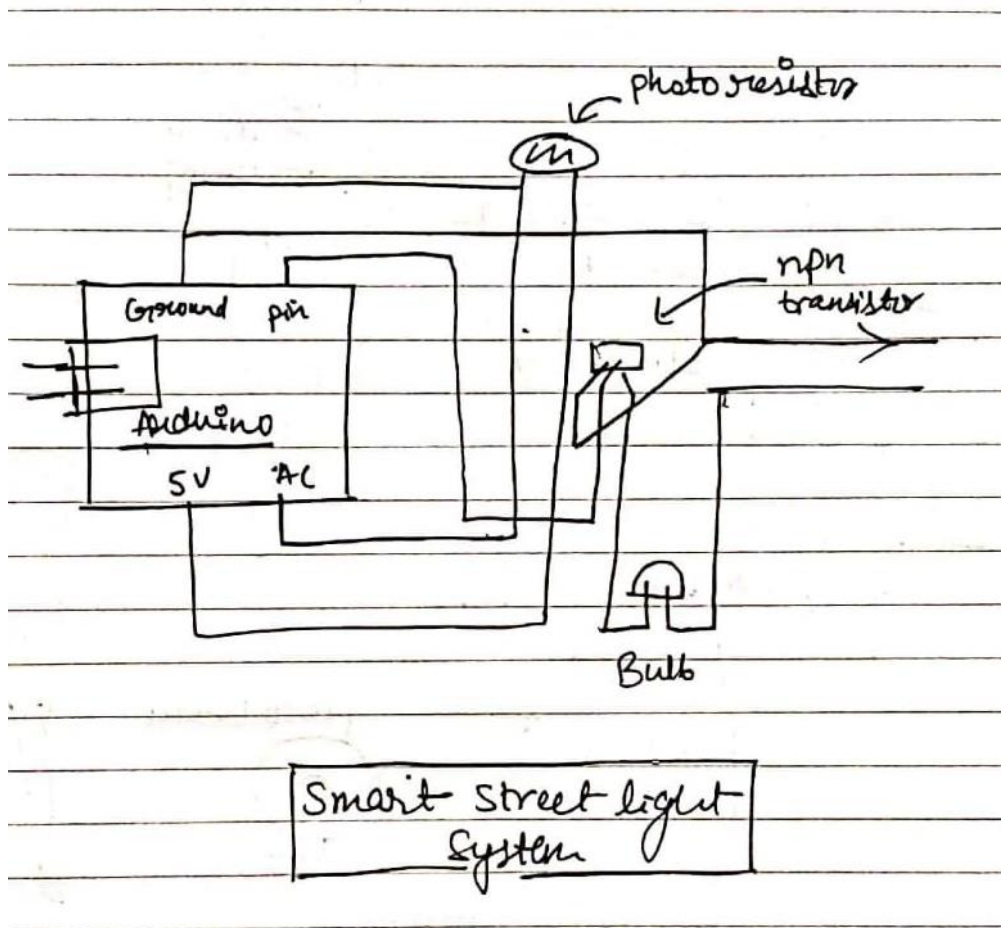 photo resistor
npn
transistor
Ground pin
Arduino
5V AC
Bulb
Smart street light
System